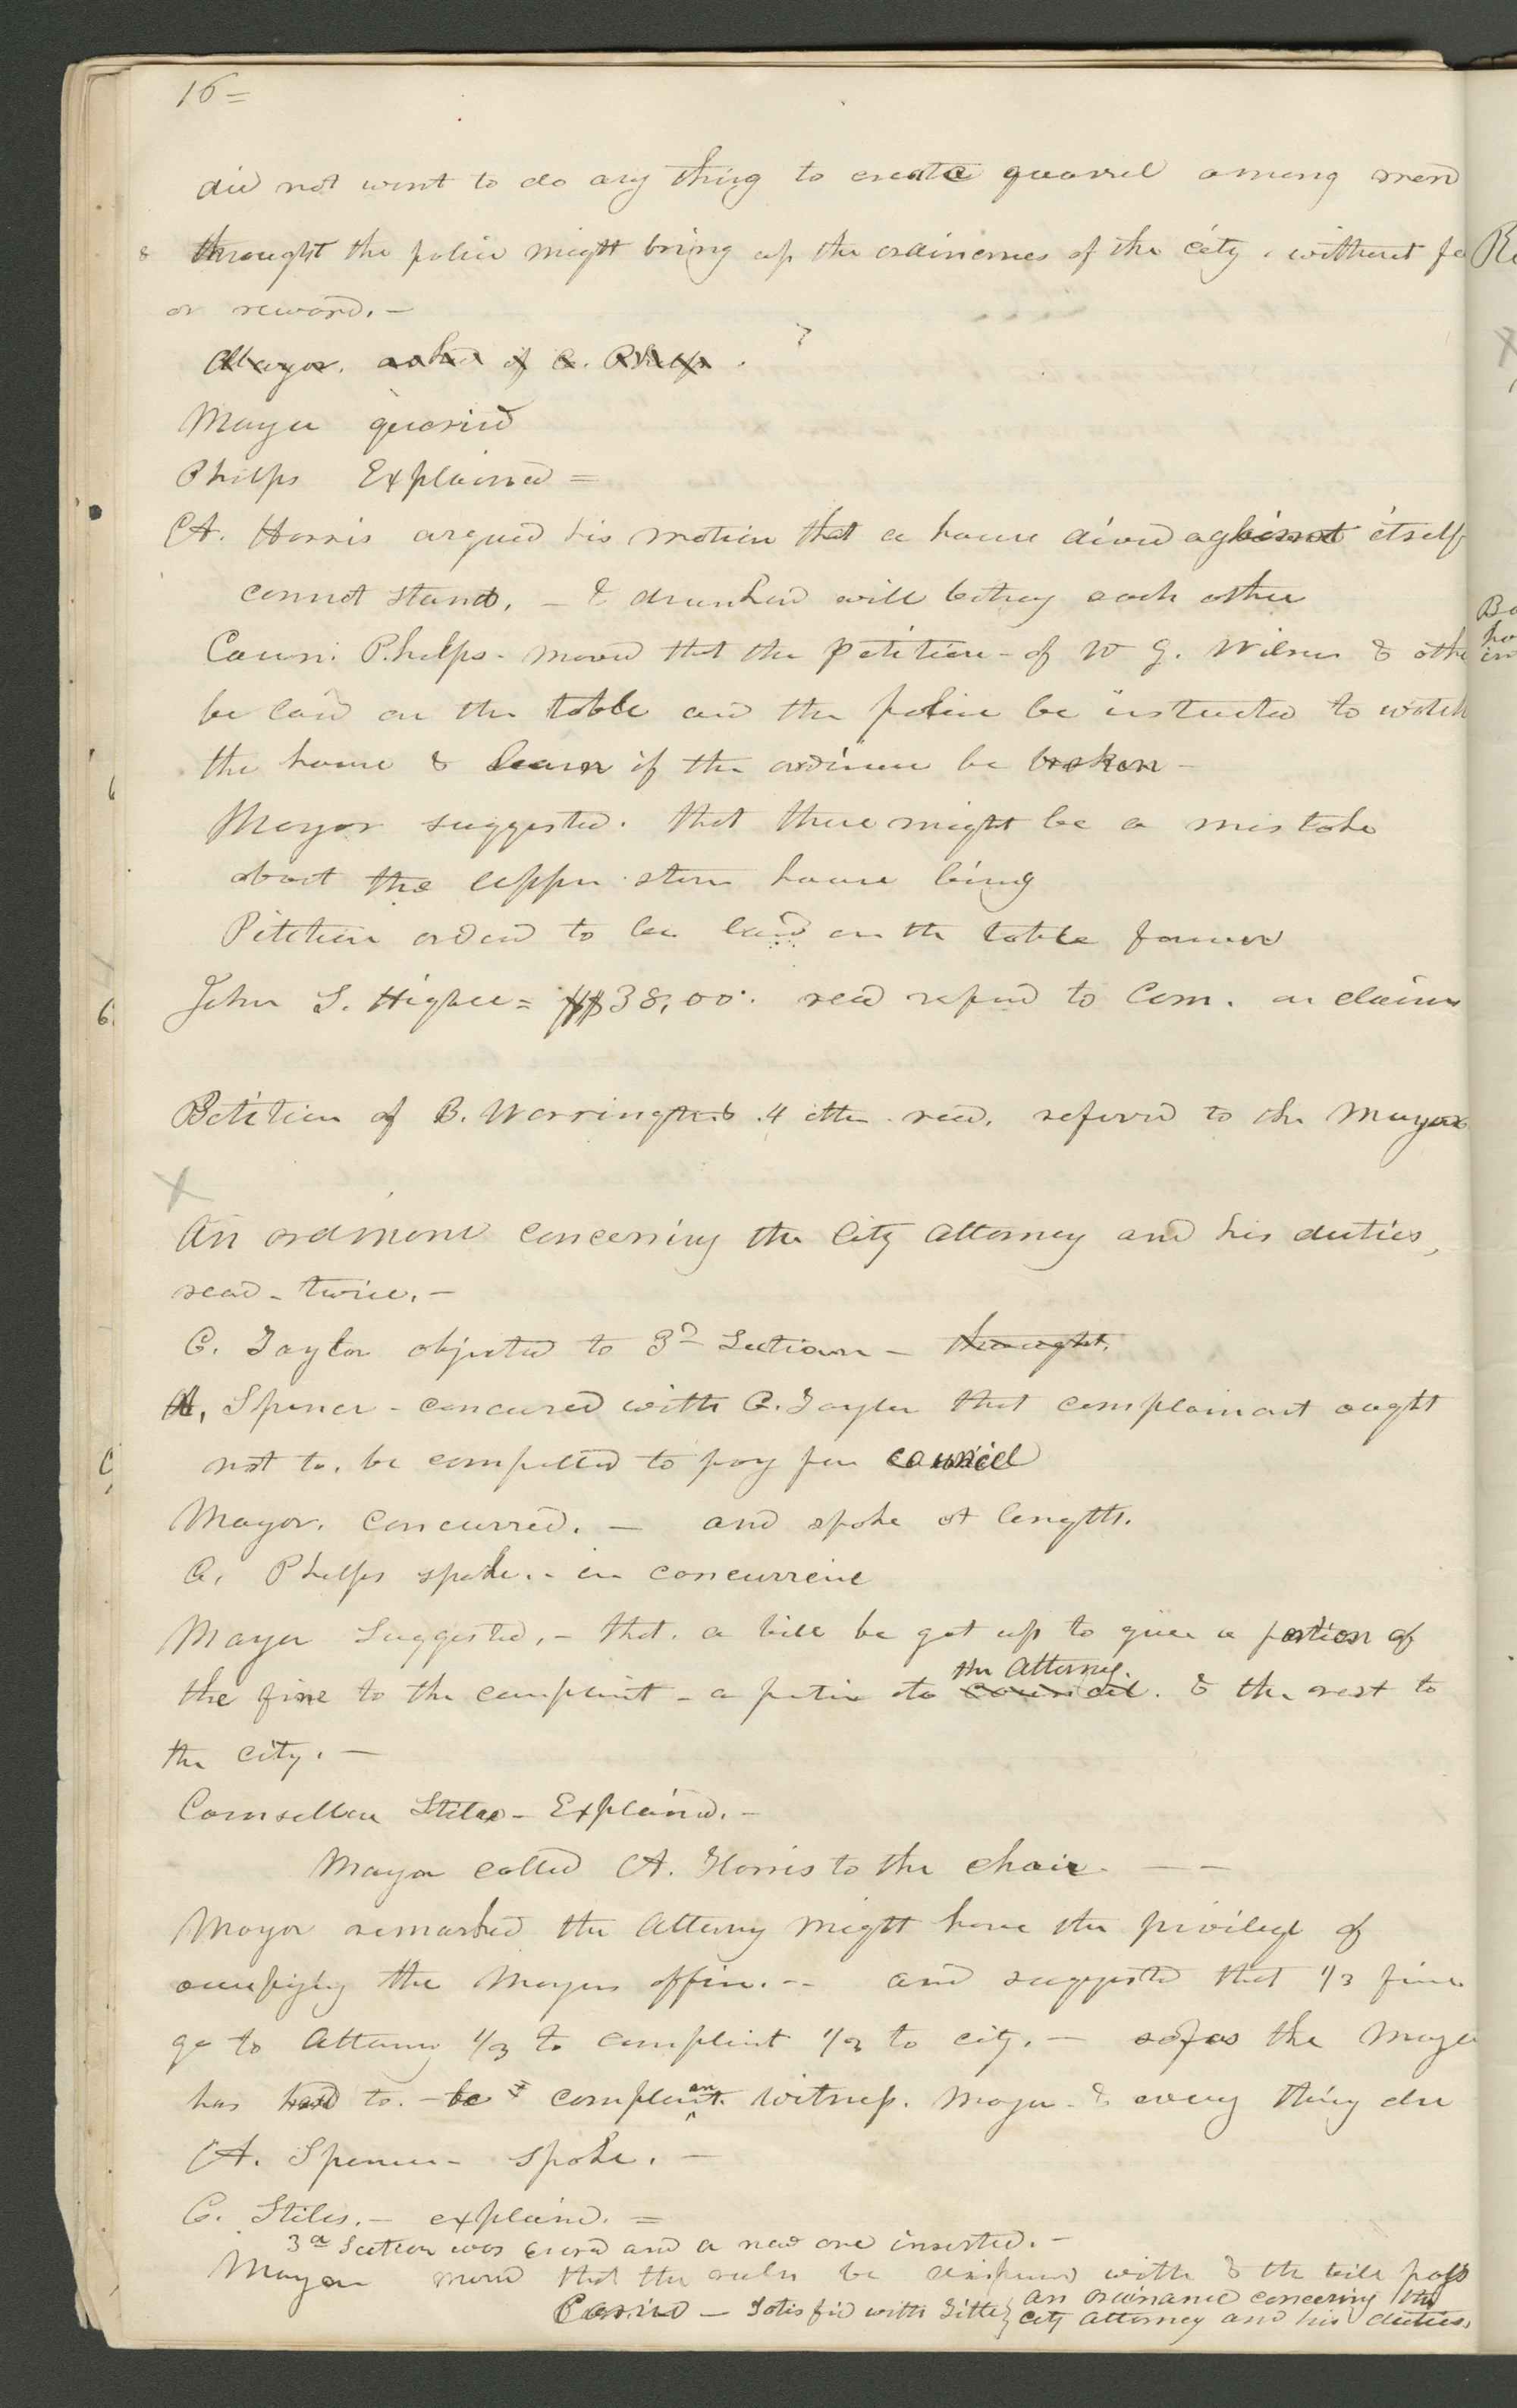 16=
did not want to do any thing to create quarrel among men
& thought the police might bring up the ordinences of the city, without fe
or reward.—
Mayor. asked of C. Phelps.
Mayor queried
Phelps Explained =
A. Harris argued his motion that a house divid against itself
cannot stand, — & drunken will betray each other
Coun. Phelps- moved that the petition - of W G. Wilson & othe
be laid on the table and the police be instructed to watch
the house & learn if the ordinence be broken —
Mayor suggested. that there might be a mistake
about the upper stone house being
Petition orderd to be laid on the table
John S. Higbee = $38,00. read referd to Com. on claims
Petition of B. Warrington & 4 others. read. referrd to the Mayor
An ordinance concerning the City Attorney and his duties,
read - twice. —
C. Taylor objected to 3d Section — thought.
A. Spencer - concured with C. Taylor that complainant ought
not to. be compelled to pay for council
Mayor. concurred. — and spoke at length.
C. Phelps spoke. - in concurrence
Mayor Suggested, - that. a bill be got up to give a portion of
the attorney.
the fine to the complaint - a portion to council. & the rest to
the city. —
Counsellor Stiles - Explained. —
Mayor called A. Harris to the chair. — —
Mayor remarked the attorney might have the privilege of
occupying the Mayors office. -- and suggested that 1/3 fine
go to Attorney 1/3 to complaint 1/3 to city. — so far as the Mayor
has had to. - be complainant. witness. Mayor - & every thing else
A. Spencer - spoke. —
C. Stiles. — explaind. =
3d Section was erased and a new one inserted. —
Mayor moved that the rules be dispensed with & the bill pass
Carried — Satisfied with Title} an ordinance concerning the
city attorney and his duties.